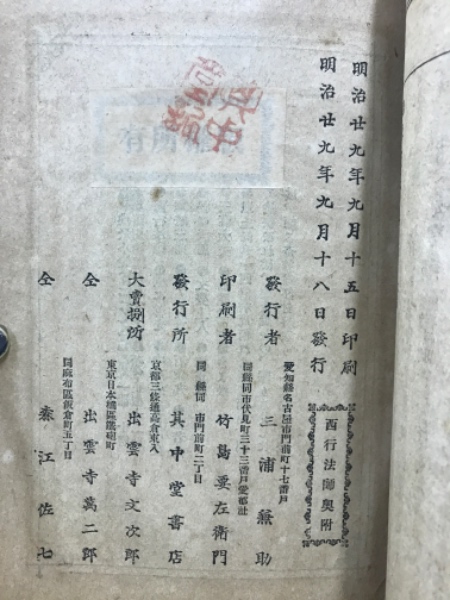 明治廿九年九月十五日印刷
明治廿九年九月十八日發行
西行法師奥附
愛知縣名古屋市門前町十七番戸
發行者 三浦兼助
同縣同市伏見町三十三番戸愛郷社
印刷者 竹島重左衛門
同縣同市門前町二丁目
發行所 其中堂書店
京都三條通高倉東入
大賣捌所 出雲寺文次郎
東京日本橋區鐵砲町
仝 出雲寺萬二郎
同麻布區飯倉町五丁目
仝 森江佐七
有所